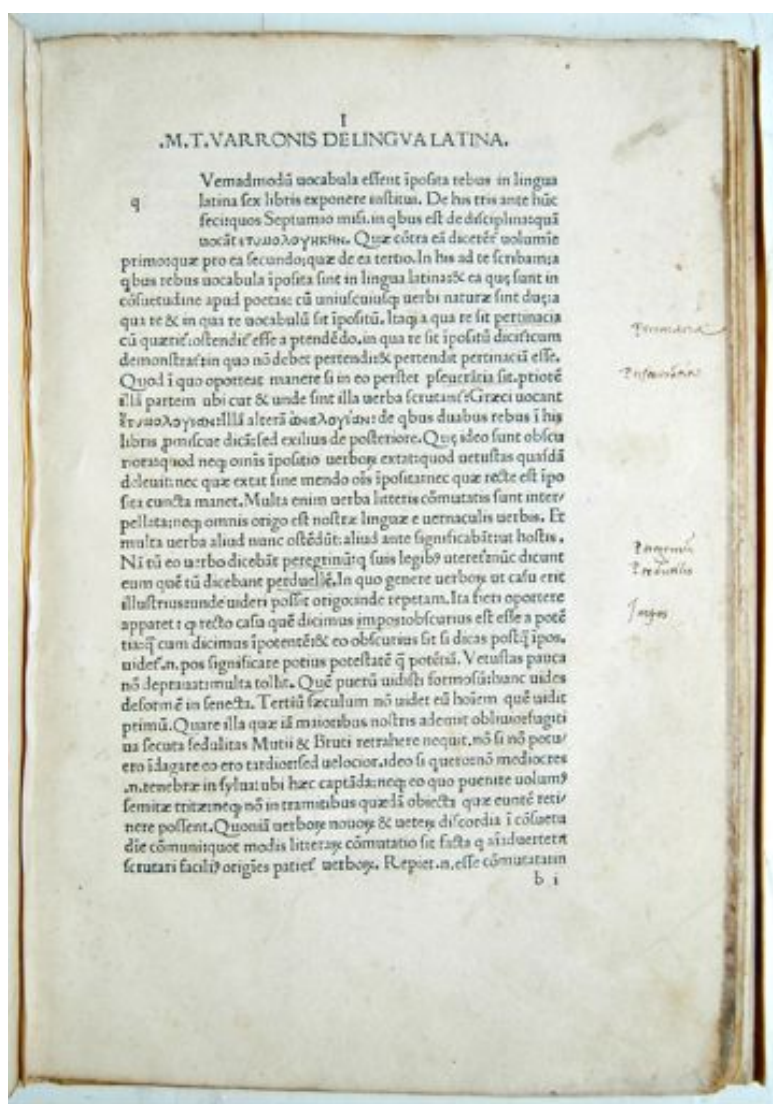 I
.M.T.VARRONIS DE LINGVA LATINA.
q
Vemadmodū uocabula essent īposita rebus in lingua
latina sex libris exponere institui. De his tris ante hūc
feci:quos Septumio misi.in qbus est de disciplina:quā
uocāt ετυμολογηκην. Quæ cōtra eā dicerēt uolumīe
primo:quæ pro ea secundo:quæ de ea tertio.In his ad te scribam:a
qbus rebus uocabula īposita sint in lingua latina:& ea quę sunt in
cōsuetudine apud poetas: cū uniuscuiusq; uerbi naturæ sint duę:a
qua re & in qua re uocabulū sit īpositū. Itaq; a qua re sit pertinacia
demonstrat:in quo nō debet pertendi:& pertendit pertinaciā esse.
Quod ī quo oporteat manere si in eo perstet
illā partem ubi cur & unde sint illa uerba Græci uocant
ἐτυμολογίαν:Illā alterā ἀναλογίαν: de qbus duabus rebus ī his
libris promiscue dicā:sed exilius de posteriore.Quę ideo sunt obscu
riora:quod neq; omīs īpositio uerboꝝ extat:quod uetustas quasdā
deleuit:nec quæ extat sine mendo oīs īposita:nec quæ recte est īpo
sita cuncta manet.Multa enim uerba litteris cōmutatis sunt inter/
pellata:neq; omnis origo est nostræ linguæ e uernaculis uerbis. Et
multa uerba aliud nunc ostēdūt:aliud ante significabāt:ut hostis.
Nā tū eo uerbo dicebāt peregrinū:q suis legibꝰ uteret:nūc dicunt
eum quē tū dicebant perduellē.In quo genere uerboꝝ ut casu erit
illustrius:unde uideri possit origo:inde repetam.Ita fieri oportere
apparet: q̨ recto casu quē dicimus impos:obscurius est esse a potē
tia:q̄ cum dicimus īpotentē:& eo obscurius sit si dicas postq̄ īpos.
uidet.n.pos significare potius potestatē q̄ potētiā. Vetustas pauca
nō deprauat:multa tollit. Quē puerū uidisti formosū:hunc uides
deformē in senecta. Tertiū sæculum nō uidet eū hoīem quē uidit
primū.Quare illa quæ iā maioribus nostris ademit obliuio:fugiti
ua secuta sedulitas Mutii & Bruti retrahere nequit.nō si nō potu/
ero īdagare eo ero tardior:sed uelocior.ideo si quero:nō mediocres
.n.tenebræ in sylua:ubi hæc captāda:neq; eo quo puenire uolumꝰ
semitæ tritæ:neq; nō in tramitibus quædā obiecta quæ euntē reti/
nere possent.Quoniā uerboꝝ nouoꝝ & ueteꝝ discordia ī cōsuetu
dīe cōmuni:quot modis litteraꝝ cōmutatio sit facta q aīaduerterit
scrutari faciliꝰ origīes patiet uerboꝝ. Repiet.n.esse cōmutatatin
b i